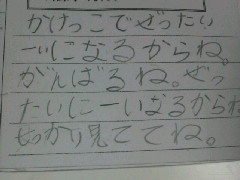 かけっこでぜったい
一いになるからね。
がんばるね。ぜっ
たいに一いなるからね
しっかり見ててね。